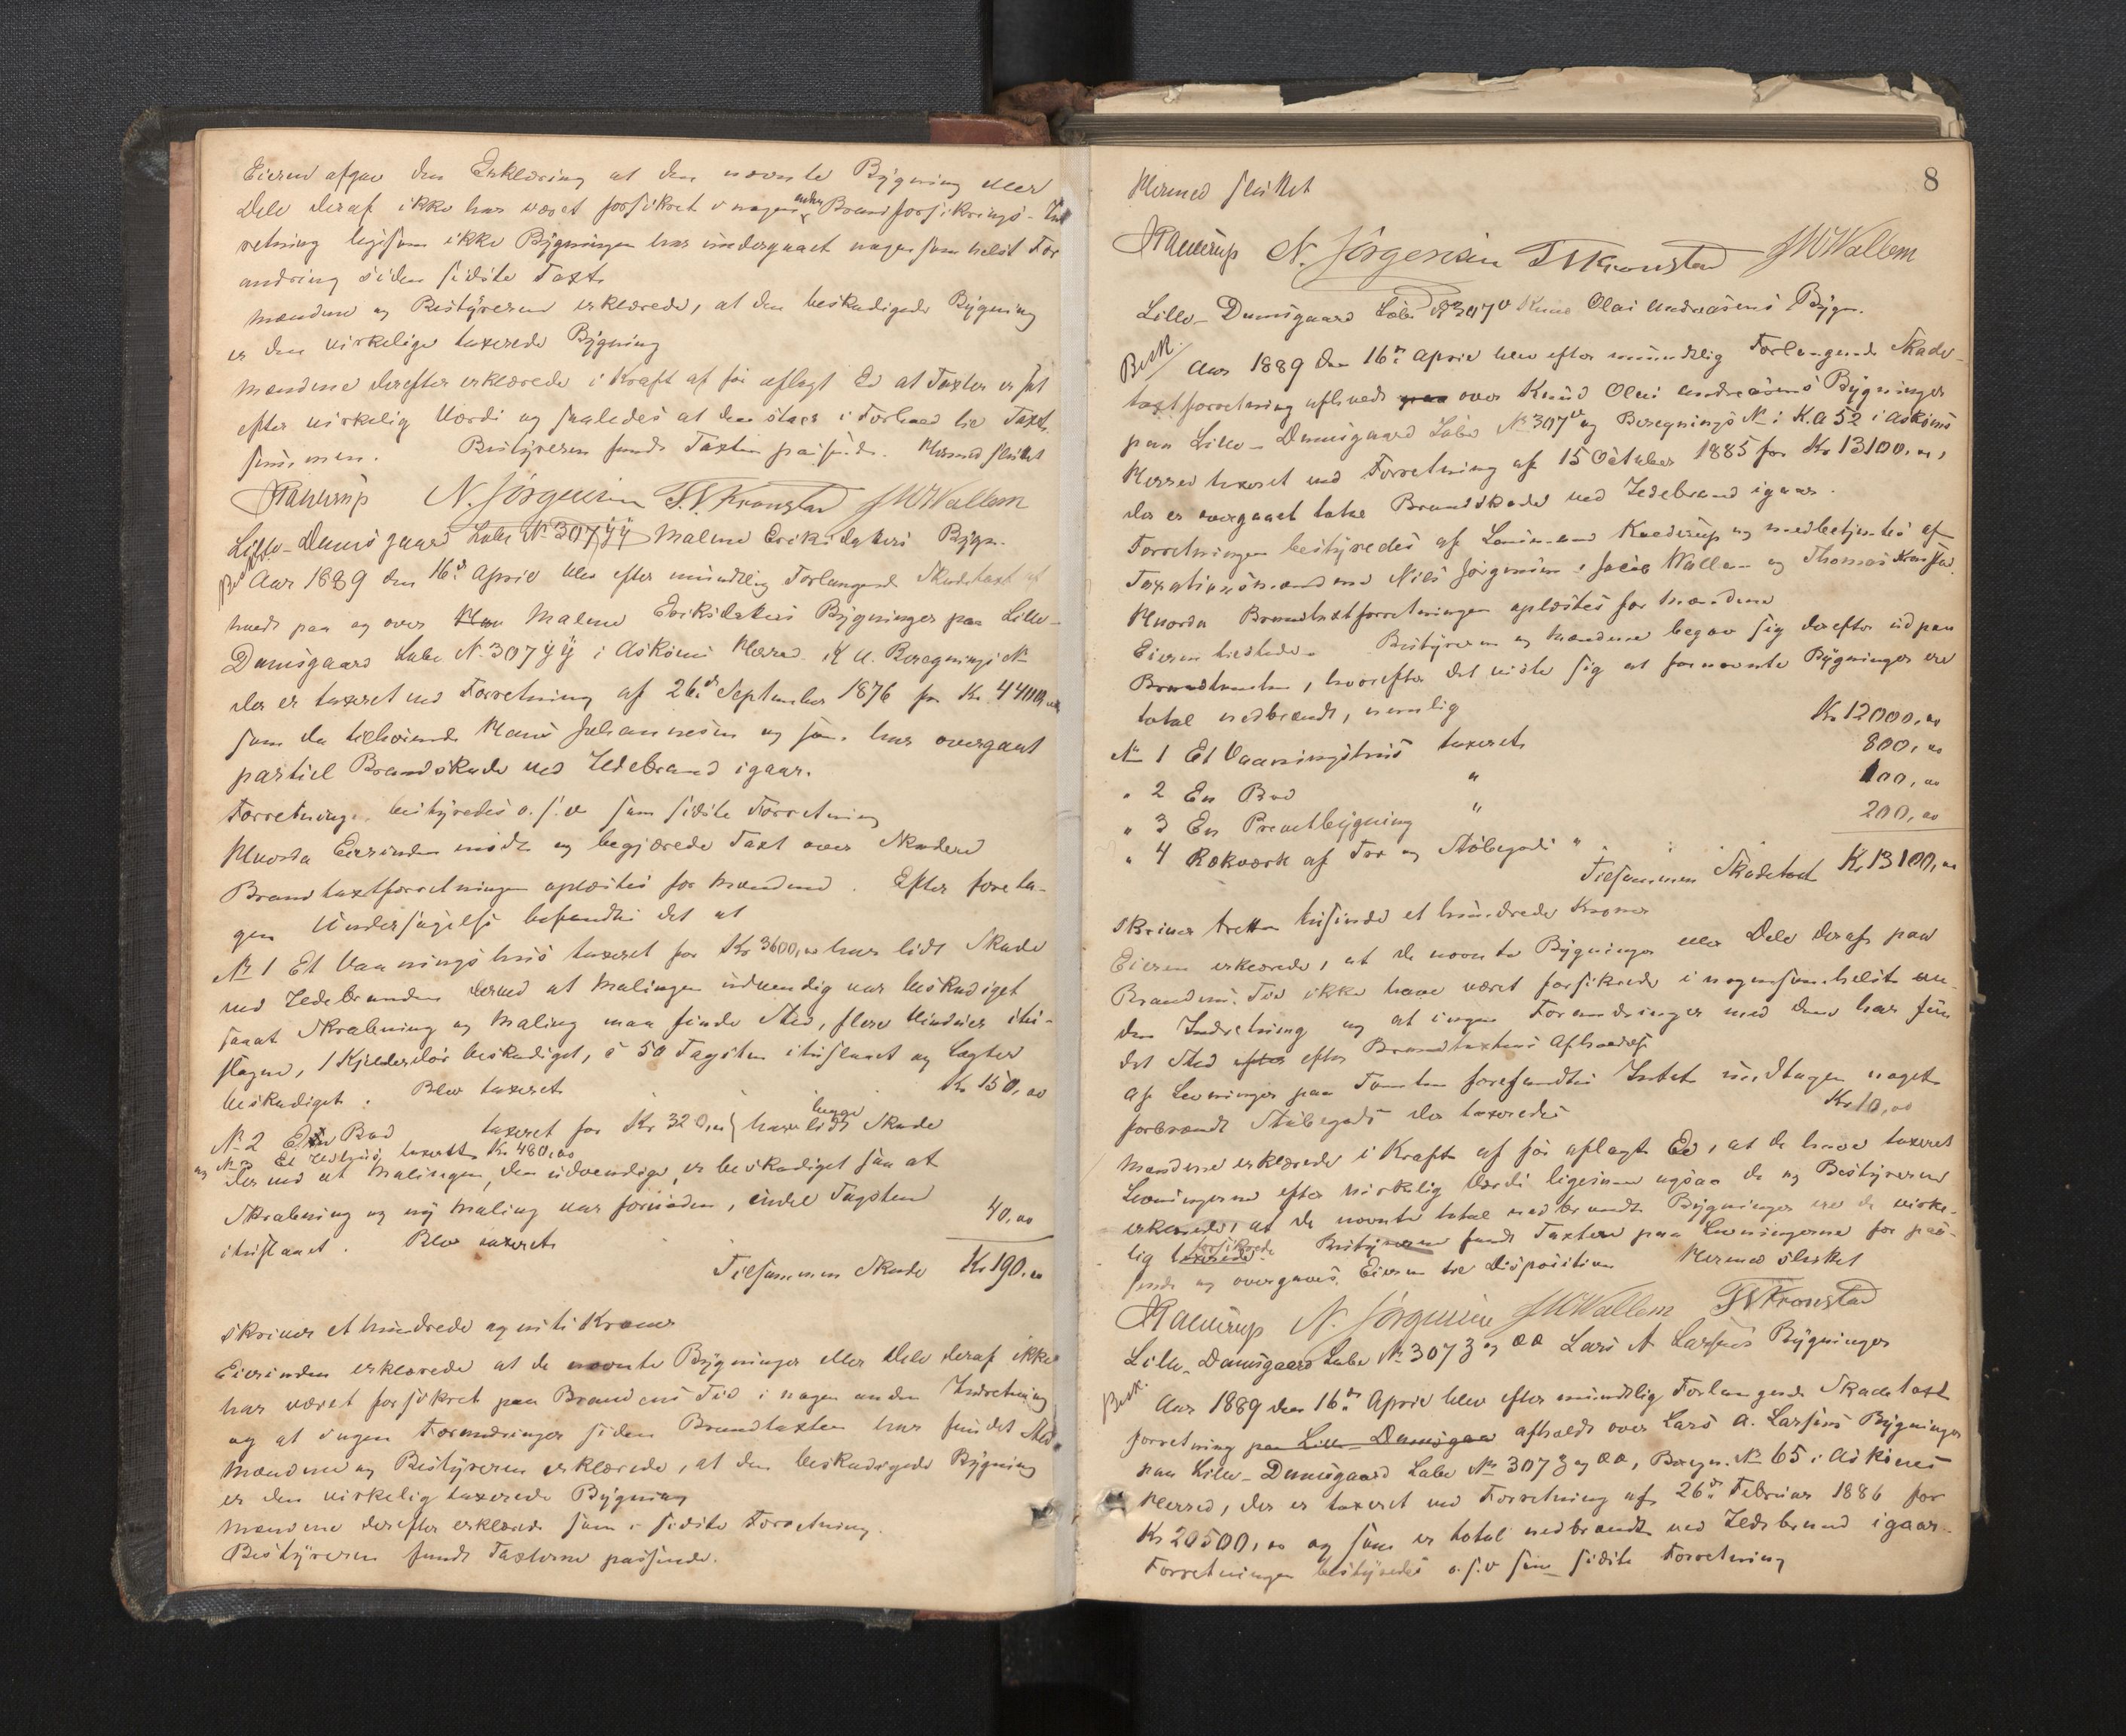 Eieren afgav den Erklæring at den nævnte Bygning eller
Dele deraf ikke har været forsikret i nogen anden Brandforsikrings-Ind
retning ligesom ikke Bygningen har undergaaet nogensomhelst For
andring siden sidste Taxt.
Mændene og Bestyreren erklærede, at den beskadigede Bygning
er den virkelige taxerede Bygning
Mændene derefter erklærede i Kraft af før aflagt Ed at Taxten er sat
efter virkelig Værdi og saaledes at den staar i Forhold til Taxt
summen. Bestyreren fandt Taxten passende. Hermed sluttet
N. Jörgensen T. V. Kronstad J W Wallem
Lille-Damsgaard Løbe No 307 ÿÿ Malene Eriksdatters Bygn.
Besk. Aar 1889 den 16de April blev efter mundtlig Forlangende Skadetaxt af
holdt paa og over Malene Eriksdatters Bygninger paa Lille-
Damsgaard Løbe No 307 ÿ ÿ i Askøens Herred K A. Beregnings No
der er taxeret ved Forretning af 26de September 1876 for Kr. 4400,00
som da tilhørende Hans Johannesen og som har overgaaet
partiel Brandskade ved Ildebrand igaar.
Forretningen bestyredes o.s.v som sidste Forretning
Hvorda Eierinden mødte og begjærede Taxt over Skaden
Brandtaxtforretningen oplæstes for Mændene. Efter foreta-
gen Undersøgelse befandtes det at
No 1 Et Vaaningshus taxeret for Kr 3600,00 har lidt Skade
ved Ildebranden derved at Malingen udvendig var beskadiget
saaat Skrabning og Maling maa finde Sted, flere Vinduer itu-
slagne, 1 Kjelderdør beskadiget, c 50 Tagsten ituslaaet og Lægter
beskadiget. Blev taxeret Kr 150,00
No 2 En Bod taxeret for Kr 320,00 } have begge lidt Skade
og No 3 Et Ildhus taxeret Kr 480,00
derved at Malingen, den udvendige, er beskadiget saa at
Skrabning og ny Maling var fornøden, endel Tagsten
ituslaaet. Blev taxeret 40,00
Tilsammen Skade Kr 190,00
skriver et hundrede og niti Kroner
Eierinden erklærede at de nævnte Bygninger eller Dele deraf ikke
har været forsikret paa Brandens Tid i nogen anden Indretning
og at ingen Forandringer siden Brandtaxten har fundet Sted.
Mændene og Bestyreren erklærede, at den beskadigede Bygning
er den virkelig taxerede Bygning
Mændene derefter erklærede som i sidste Forretning.
Bestyreren fandt Taxterne passende.
8
Hermed sluttet
N. Jörgensen T V Kronstad J W Wallem
Lille-Damsgaard Løbe No 307 v Knud Olai Andreasens Bygn.
Besk. Aar 1889 den 16de April blev efter mundtlig Forlangende Skade-
taxtforretning afholdt paa over Knud Olai Andreasens Bygninger
paa Lille-Damsgaard Løbe No 307 v og Beregnings No i K.A 52 i Askøens
Herred taxeret ved Forretning af 15 October 1885 for Kr 13100,00,
der er overgaaet total Brandskade ved Ildebrand igaar.
Forretningen bestyredes af Lensmand og medbetjentes af
Taxationsmændene Nils Jörgensen, Jacob Wallem og Thomas Kronstad.
Hvorda Brandtaxtforretningen oplæstes for Mændene
Eieren tilstede. Bestyreren og Mændene begav sig derefter ud paa
Brandtomten, hvorefter det viste sig at fornævnte Bygninger ere
total nedbrændt, nemlig
No 1 Et Vaaningshus taxeret Kr 12000,00
" 2 En Bod " 800,00
" 3 En Privetbygning " 100,00
" 4 Rækværk af Træ og Støbegods " 200,00
Tilsammen Skadetaxt Kr 13100,00
skriver tretten tusinde et hundrede Kroner
Eieren erklærede, at de nævnte Bygninger eller Dele deraf paa
Brandens Tid ikke have været forsikrede i nogensomhelst an-
den Indretning og at ingen Forandringer med dem har fun
det Sted efter efter Brandtaxtens Afholdelse
Af Levninger paa Tomten forefandtes Intet undtagen noget
forbrændt Støbegods der taxeredes Kr 10,00
Mændene erklærede i Kraft af før aflagt Ed, at de have taxeret
Levningerne efter virkelig Værdi ligesom ogsaa de og Bestyreren
erklærede, at de nævnte total nedbrændte Bygninger ere de virke-
lig taxerede forsikrede. Bestyreren fandt Taxten paa Levningerne for pas-
sende og overgaves Eieren til Disposition Hermed sluttet
N. Jörgensen J W Wallem T V Kronstad
Lille-Damsgaard Løbe No 307 z og ææ Lars A Larsens Bygninger
Besk. Aar 1889 den 16de April blev efter mundtlig Forlangende Skadetaxt
forretning paa Lille-Damsgaa afholdt over Lars A. Larsens Bygninger
paa Lille-Damsgaard Løbe No 307 z og ææ, Beregn. No 65 i Askøens
Herred, der er taxeret ved Forretning af 26de Februar 1886 for
Kr 20500,00 og som er total nedbrændt ved Ildebrand igaar.
Forretningen bestyredes o.s.v som sidste Forretning